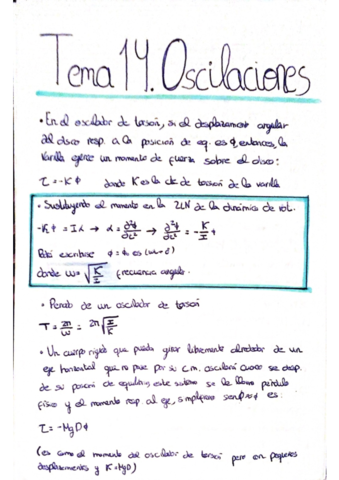 Tema 14. Oscilaciones
• En el oscilador de torsión, si el desplazament angular
del disco resp. a la posicion de eq. es ϕ, entonces, la
varilla ejerce un momento de fuerza sobre el disco:
τ = -K ϕ donde K es la cte de torsion de la varilla
• Sustituyendo el momento en la 2LN de la dinámica de rot.
-Kϕ = Iα → α = ∂²ϕ/∂t² → ∂²ϕ/∂t² = -K/I ϕ
Podrá escribirse ϕ = ϕ₀ cos(ωt-δ)
donde ω = √(K/I) frecuencia angular.
• Periodo de un oscilador de torsion
T = 2π/ω = 2π√(I/K)
• Un cuerpo rígido que pueda girar libremente alrededor de un
eje horizontal que no pase por su c.m. oscilará cuando se desp.
de su posición de equilibrio, este sistema se le llama péndulo
físico y el momento resp. al eje, simplificando senϕ≈ϕ es:
τ = -MgDϕ
(es como el momento del oscilador de torsion pero en pequeños
desplazamientos y K=MgD)